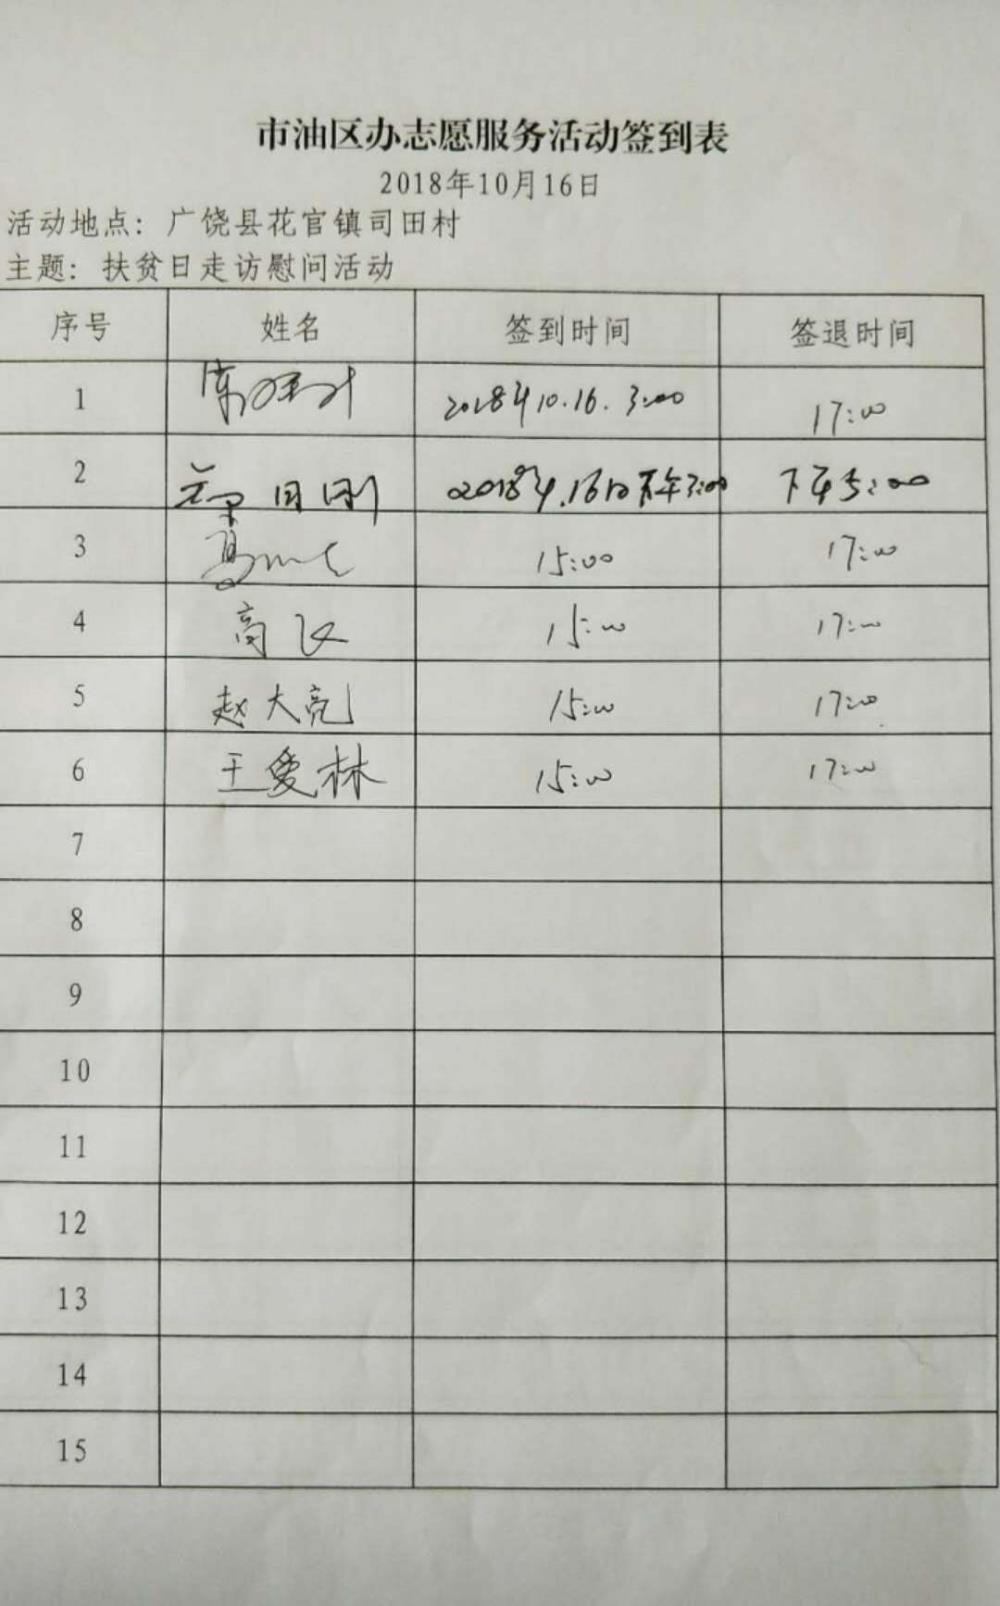 市油区办志愿服务活动签到表
2018年10月16日
活动地点：广饶县花官镇司田村
主题：扶贫日走访慰问活动
序号 姓名 签到时间 签退时间
1 2018年10.16. 3:00 17:00
2 下午5:00
3 15:00 17:00
4 高飞 15:00 17:00
5 赵大亮 15:00 17:00
6 王爱林 15:00 17:00
7
8
9
10
11
12
13
14
15